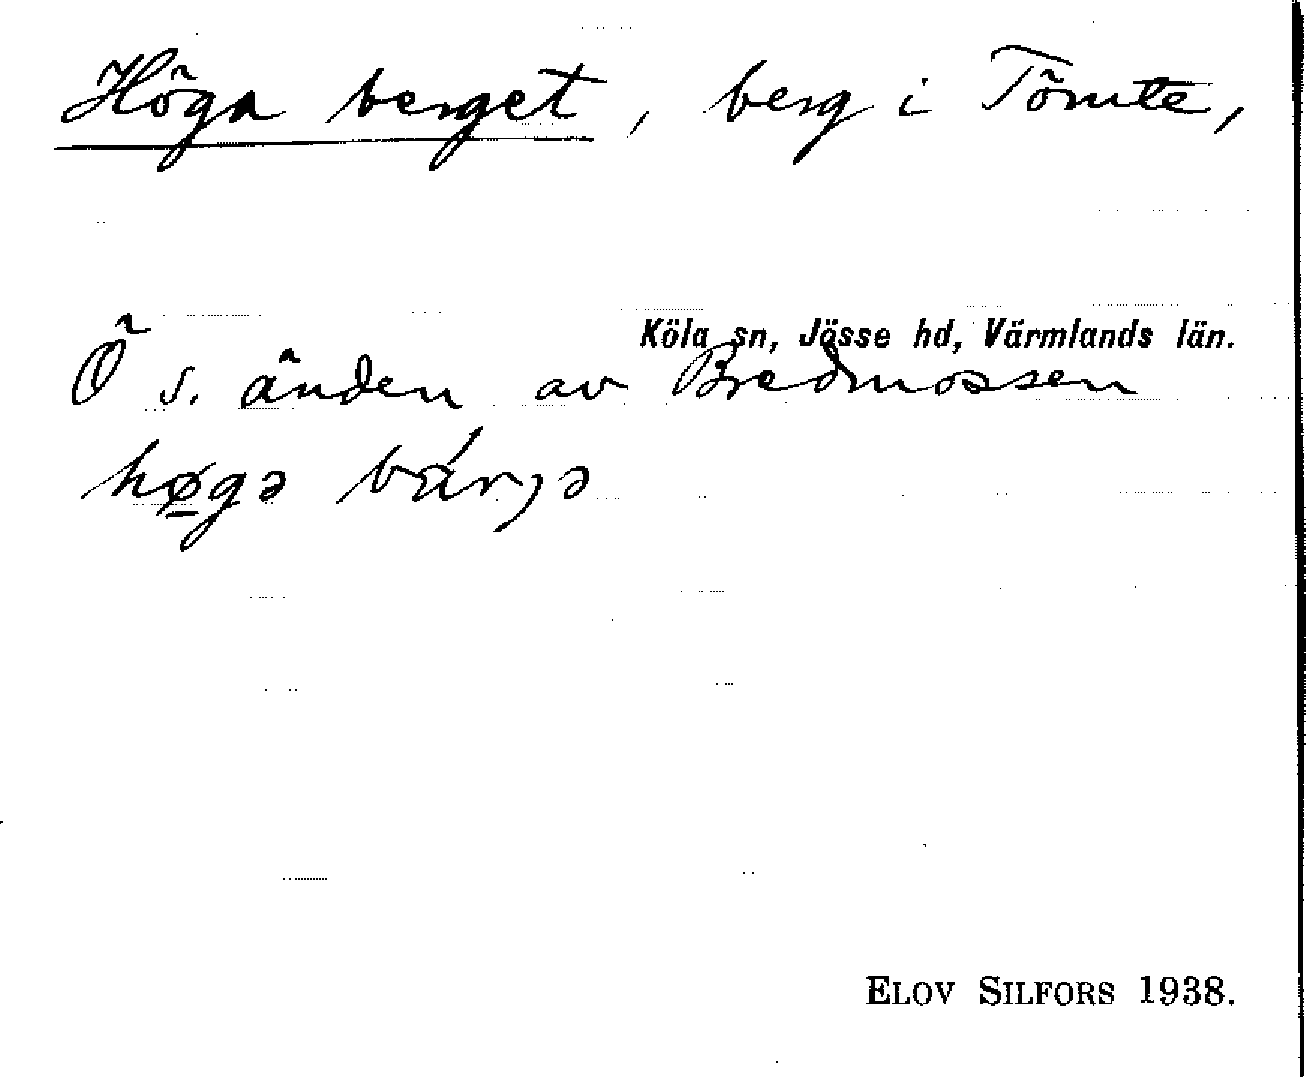 Höga berget, berg i Tömte,
Köla sn, Jösse hd, Värmlands län.
Ö s. änden av Bredmossen
hø̱gə bárjə
ELOV SILFORS 1938.